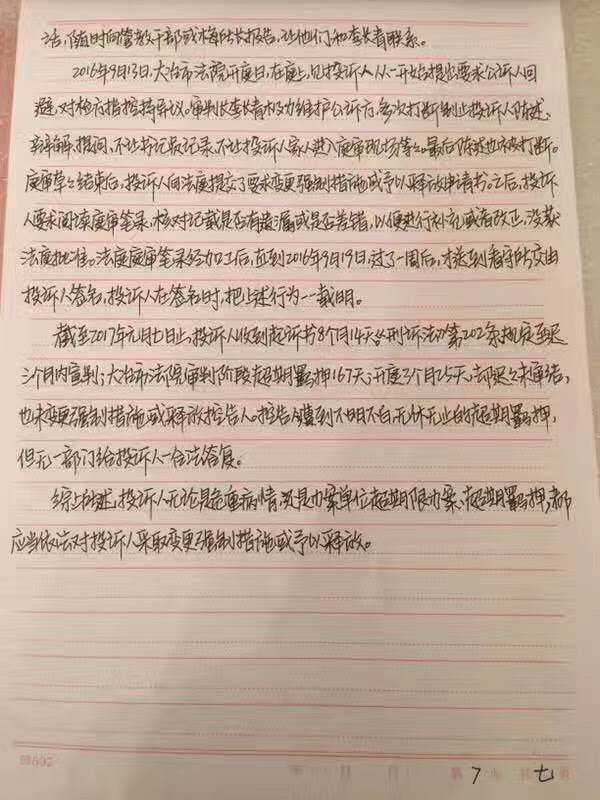 话,随时向管教干部或梅所长报告,让他们和李长青联系。
2016年9月13日,大冶市法院开庭日,在庭上,见投诉人从一开始提出要求公诉人回
避,对检方指控持异议,审判长李长青极力维护公诉方,多次打断制止投诉人陈述、
辩解、提问,不让书记员记录,不让投诉人家人进入庭审现场等等。最后陈述也被打断。
庭审草草结束后,投诉人向法庭提交了要求变更强制措施或予以释放申请书。之后,投诉
人要求阅读庭审笔录,核对记载是否有遗漏或是否差错,以便进行补充或者改正,没获
法庭批准。法庭庭审笔录经加工后,直到2016年9月19日,过了一周后,才送到看守所交由
投诉人签名,投诉人在签名时,把上述行为一一载明。
截至2017年元月七日止,投诉人收到起诉书8个月14天,《刑诉法》第202条规定至迟
三个月内宣判;大冶市法院审判阶段超期羁押167天;开庭3个月25天,却迟迟未审结,
也未变更强制措施或释放控告人。控告人遭到不明不白,无休无止的超期羁押,
但无一部门给投诉人一合法答复。
综上所述,投诉人无论是危重病情还是办案单位超期限办案、超期羁押,都
应当依法对投诉人采取变更强制措施或予以释放。
年 月 日 第 7 页 共 七 页